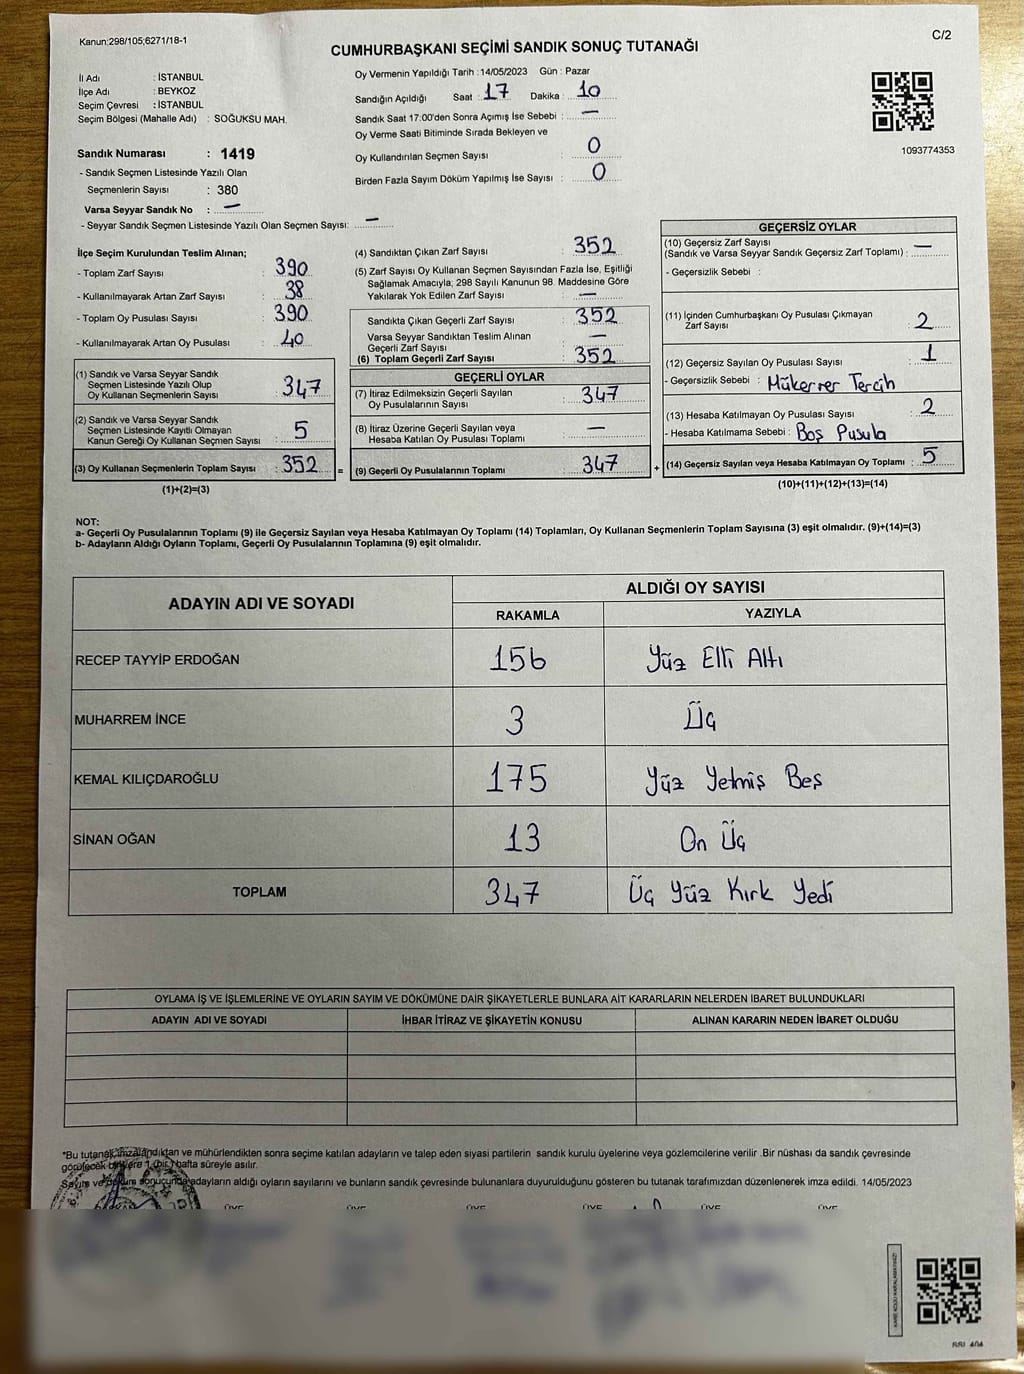 Kanun:298/105;6271/18-1
C/2
CUMHURBAŞKANI SEÇİMİ SANDIK SONUÇ TUTANAĞI
İl Adı : İSTANBUL
İlçe Adı : BEYKOZ
Seçim Çevresi : İSTANBUL
Seçim Bölgesi (Mahalle Adı) : SOĞUKSU MAH.
Oy Vermenin Yapıldığı Tarih :14/05/2023 Gün : Pazar
Sandığın Açıldığı Saat : 17 Dakika : 10
Sandık Saat 17:00'den Sonra Açımış İse Sebebi : —
Oy Verme Saati Bitiminde Sırada Bekleyen ve
Oy Kullandırılan Seçmen Sayısı : 0
Birden Fazla Sayım Döküm Yapılmış İse Sayısı : 0
1093774353
Sandık Numarası : 1419
- Sandık Seçmen Listesinde Yazılı Olan
Seçmenlerin Sayısı : 380
Varsa Seyyar Sandık No : —
- Seyyar Sandık Seçmen Listesinde Yazılı Olan Seçmen Sayısı: —
İlçe Seçim Kurulundan Teslim Alınan;
- Toplam Zarf Sayısı : 390
- Kullanılmayarak Artan Zarf Sayısı : 38
- Toplam Oy Pusulası Sayısı : 390
- Kullanılmayarak Artan Oy Pusulası : 40
(1) Sandık ve Varsa Seyyar Sandık
Seçmen Listesinde Yazılı Olup
Oy Kullanan Seçmenlerin Sayısı : 347
(2) Sandık ve Varsa Seyyar Sandık
Seçmen Listesinde Kayıtlı Olmayan
Kanun Gereği Oy Kullanan Seçmen Sayısı : 5
(3) Oy Kullanan Seçmenlerin Toplam Sayısı : 352 =
(1)+(2)=(3)
(4) Sandıktan Çıkan Zarf Sayısı : 352
(5) Zarf Sayısı Oy Kullanan Seçmen Sayısından Fazla İse, Eşitliği
Sağlamak Amacıyla; 298 Sayılı Kanunun 98. Maddesine Göre
Yakılarak Yok Edilen Zarf Sayısı : —
Sandıkta Çıkan Geçerli Zarf Sayısı : 352
Varsa Seyyar Sandıktan Teslim Alınan
Geçerli Zarf Sayısı : —
(6) Toplam Geçerli Zarf Sayısı : 352
GEÇERLİ OYLAR
(7) İtiraz Edilmeksizin Geçerli Sayılan
Oy Pusulalarının Sayısı : 347
(8) İtiraz Üzerine Geçerli Sayılan veya
Hesaba Katılan Oy Pusulası Toplamı : —
(9) Geçerli Oy Pusulalarının Toplamı : 347 +
GEÇERSİZ OYLAR
(10) Geçersiz Zarf Sayısı
(Sandık ve Varsa Seyyar Sandık Geçersiz Zarf Toplamı) : —
- Geçersizlik Sebebi :
(11) İçinden Cumhurbaşkanı Oy Pusulası Çıkmayan
Zarf Sayısı : 2
(12) Geçersiz Sayılan Oy Pusulası Sayısı : 1
- Geçersizlik Sebebi : Mükerrer Tercih
(13) Hesaba Katılmayan Oy Pusulası Sayısı : 2
- Hesaba Katılmama Sebebi : Boş Pusula
(14) Geçersiz Sayılan veya Hesaba Katılmayan Oy Toplamı : 5
(10)+(11)+(12)+(13)=(14)
NOT:
a- Geçerli Oy Pusulalarının Toplamı (9) ile Geçersiz Sayılan veya Hesaba Katılmayan Oy Toplamı (14) Toplamları, Oy Kullanan Seçmenlerin Toplam Sayısına (3) eşit olmalıdır. (9)+(14)=(3)
b- Adayların Aldığı Oyların Toplamı, Geçerli Oy Pusulalarının Toplamına (9) eşit olmalıdır.
ADAYIN ADI VE SOYADI
ALDIĞI OY SAYISI
RAKAMLA YAZIYLA
RECEP TAYYİP ERDOĞAN 156 Yüz Elli Altı
MUHARREM İNCE 3 Üç
KEMAL KILIÇDAROĞLU 175 Yüz Yetmiş Beş
SİNAN OĞAN 13 On Üç
TOPLAM 347 Üç Yüz Kırk Yedi
OYLAMA İŞ VE İŞLEMLERİNE VE OYLARIN SAYIM VE DÖKÜMÜNE DAİR ŞİKAYETLERLE BUNLARA AİT KARARLARIN NELERDEN İBARET BULUNDUKLARI
ADAYIN ADI VE SOYADI İHBAR İTİRAZ VE ŞİKAYETİN KONUSU ALINAN KARARIN NEDEN İBARET OLDUĞU
*Bu tutanak imzalandıktan ve mühürlendikten sonra seçime katılan adayların ve talep eden siyasi partilerin sandık kurulu üyelerine veya gözlemcilerine verilir .Bir nüshası da sandık çevresinde
görülecek bir yere 1 (bir) hafta süreyle asılır.
Sayım ve döküm sonucunda adayların aldığı oyların sayılarını ve bunların sandık çevresinde bulunanlara duyurulduğunu gösteren bu tutanak tarafımızdan düzenlenerek imza edildi. 14/05/2023
ÜYE ÜYE ÜYE ÜYE ÜYE ÜYE